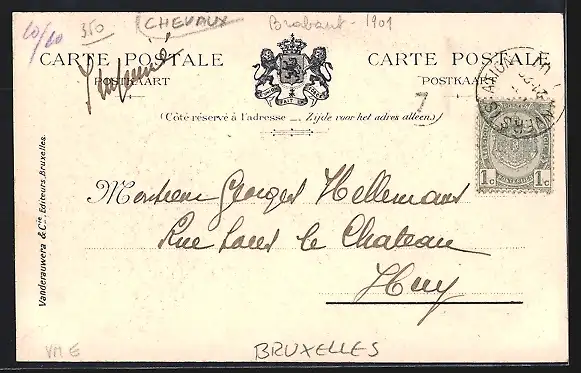 10/10 350 CHEVAUX Brabant - 1901
CARTE POSTALE CARTE POSTALE
POSTKAART POSTKAART
(Côté réservé à l'adresse — Zijde voor het adres alleen.)
1c 1c
Vanderauwera & Cie, Editeurs, Bruxelles.
Monsieur Georges Hellemans
Rue sous le Chateau
Huy
VM E
BRUXELLES